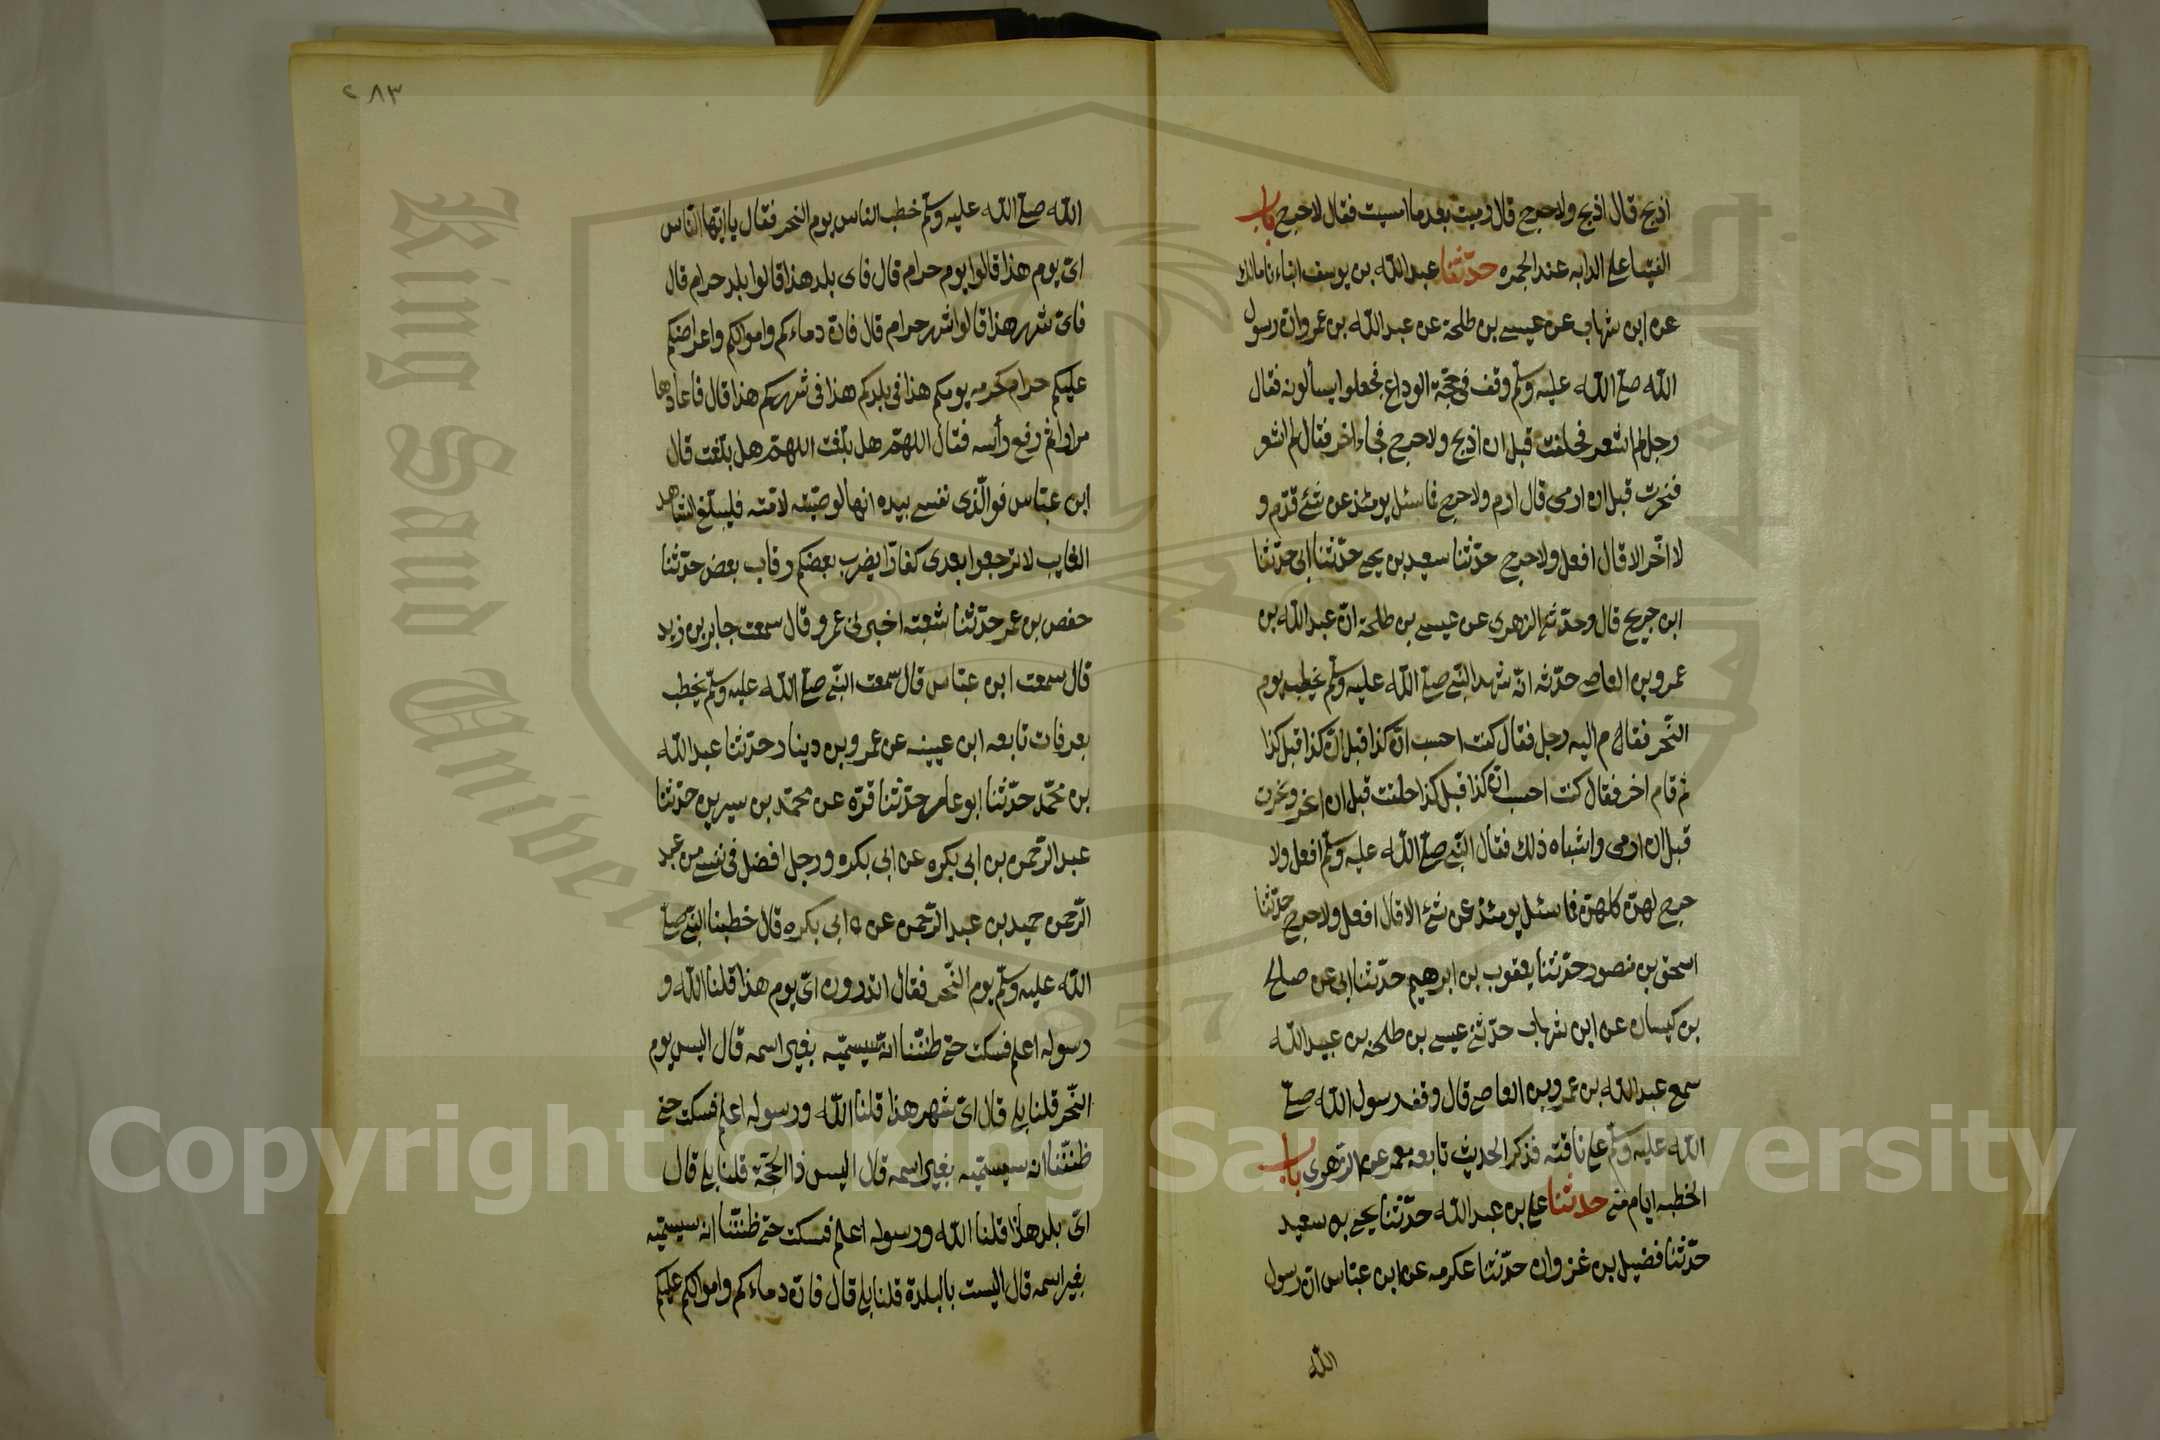 اذبح قال اذبح ولا حرج قال رميت بعد ما امسيت فقال لا حرج باب
الفتيا على الدابه عند الجمره حدّثنا عبد الله بن يوسف انباءنا مالك
عن ابن شهاب عن عيسى بن طلحة عن عبد الله بن عمرو انّ رسول
الله صلّى الله عليه وسلّم وقف في حجّة الوداع فجعلوا يسألونه فقال
رجل لم اشعر فحلقت قبل ان اذبح ولا حرج فجاء اخر فقال لم اشعر
فنحرت قبل ان ارمى قال ارم ولا حرج فما سئل يومئذ عن شئ قدّم و
لا اخّر الا قال افعل ولا حرج حدّثنا سعيد بن يحيى حدّثنا ابى حدّثنا
ابن جريج قال وحدّثنى الزهرى عن عيسى بن طلحة انّ عبد الله بن
عمرو بن العاص حدّثه انّه شهد النّبى صلّى الله عليه وسلّم يخطب يوم
النّحر فقام اليه رجل فقال كنت احسب انّ كذا قبل انّ كذا قبل كذا
ثم قام اخر فقال كنت احسب انّ كذا قبل كذا حلقت قبل ان انحر ونحرت
قبل ان ارمى واشباه ذلك فقال النّبى صلّى الله عليه وسلّم افعل ولا
حرج لهنّ كلهنّ فما سئل يومئذ عن شئ الا قال افعل ولا حرج حدّثنا
اسحق بن منصور حدّثنا يعقوب بن ابرهيم حدّثنا ابى عن صالح
بن كيسان عن ابن شهاب حدّثنى عيسى بن طلحة بن عبيد الله
سمع عبد الله بن عمرو بن العاص قال وقف رسول الله صلّى
الله عليه وسلّم على ناقته فذكر الحديث تابعه معمر عن الزهرى باب
الخطبه ايام منى حدثنا على بن عبد الله حدّثنا يحيى بن سعيد
حدّثنا فضيل بن غزوان حدّثنا عكرمه عن ابن عبّاس انّ رسول
الله
٢٨٣
الله صلّى الله عليه وسلّم خطب الناس يوم النحر فقال يا ايّها النّاس
اىّ يوم هذا قالوا يوم حرام قال فاى بلد هذا قالوا بلد حرام قال
فاىّ شهر هذا قالوا شهر حرام قال فانّ دماءكم واموالكم واعراضكم
عليكم حرام كحرمه يومكم هذا فى بلدكم هذا فى شهركم هذا قال فاعادها
مرارا ثم رفع رأسه فقال اللهمّ هل بلّغت اللهمّ هل بلّغت قال
ابن عبّاس فوالّذى نفسى بيده انها لوصيّته لامّته فليبلّغ الشاهد
الغايب لا ترجعوا بعدى كفارّا يضرب بعضكم رقاب بعض حدّثنا
حفص بن عمر حدّثنا شعبة اخبرنى عمرو قال سمعت جابر بن زيد
قال سمعت ابن عبّاس قال سمعت النبّى صلّى الله عليه وسلّم يخطب
بعرفات تابعه ابن عيينه عن عمرو بن دينار حدّثنا عبد الله
بن محمّد حدّثنا ابو عامر حدّثنا قرّه عن محمّد بن سيرين حدّثنا
عبد الرّحمن بن ابى بكره عن ابى بكره ورجل افضل فى نفسى من عبد
الرّحمن حميد بن عبد الرّحمن عن ابى بكره قال خطبنا النبّى صلّى
الله عليه وسلّم يوم النّحر فقال اتدرون اىّ يوم هذا قلنا الله و
رسوله اعلم فسكت حتّى ظننّا انّه سيسميّه بغير اسمه قال اليس يوم
النّحر قلنا بلى قال اىّ شهر هذا قلنا الله ورسوله اعلم فسكت حتى
ظننّنا انه سيسمّيه بغير اسمه قال اليس ذا الحجّة قلنا بلى قال
اىّ بلد هذا قلنا الله ورسوله اعلم فسكت حتّى ظننّنا انه سيسمّيه
بغير اسمه قال اليست بالبلدة قلنا بلى قال فانّ دماءكم واموالكم عليكم
King Saud University
1957
Copyright © King Saud University